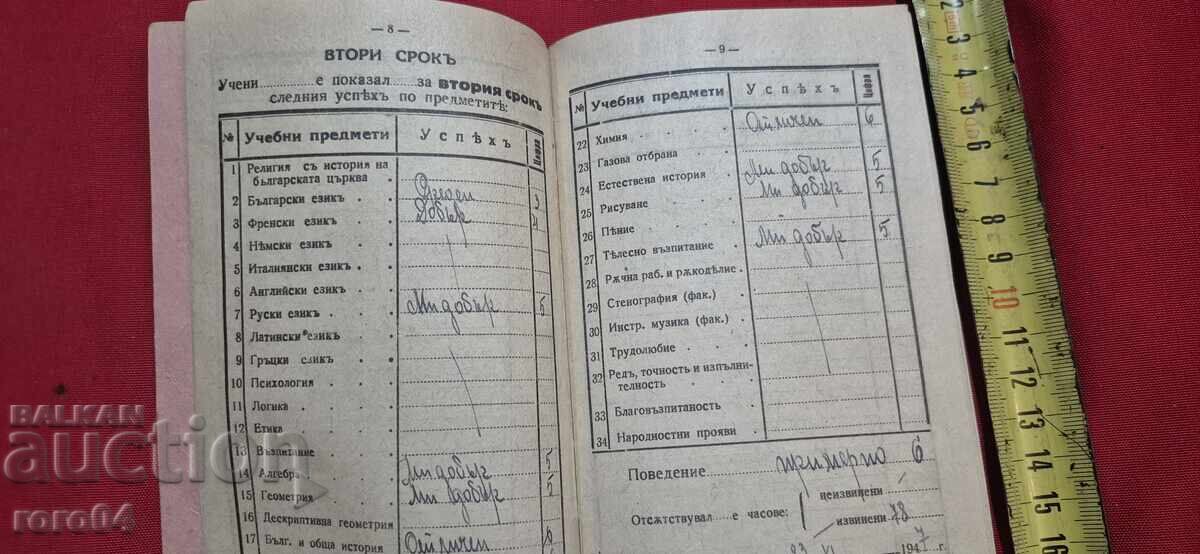 — 8 —
ВТОРИ СРОКЪ
Учени............е показал......за ВТОРИЯ СРОКЪ
следния успѣхъ по предметитѣ:
№ Учебни предмети Успѣхъ Цифра
1 Религия съ история на
българската църква
2 Български езикъ Среден 3
3 Френски езикъ Добър 4
4 Нѣмски езикъ
5 Италиянски езикъ
6 Английски езикъ
7 Руски езикъ Мн добър 5
8 Латински езикъ
9 Гръцки езикъ
10 Психология
11 Логика
12 Етика
13 Възпитание
14 Алгебра Мн добър 5
15 Геометрия Мн добър 5
16 Дескриптивна геометрия
17 Бълг. и обща история Отличен 6
— 9 —
№ Учебни предмети Успѣхъ Цифра
22 Химия Отличен 6
23 Газова отбрана
24 Естествена история Мн добър 5
25 Рисуване Мн добър 5
26 Пѣние
27 Тѣлесно възпитание Мн добър 5
28 Рѫчна раб. и рѫкодѣлие
29 Стенография (фак.)
30 Инстр. музика (фак.)
31 Трудолюбие
32 Редъ, точность и изпълни-
телность
33 Благовъзпитаность
34 Народностни прояви
Поведение примерно 6
неизвинени
Отсѫтствувал....е часове:
извинени 78
23 VI 1947 г.
2 3 4 5 6 7 8 9 10 11 12 13 14 15 16
BALKAN
auction
roro64